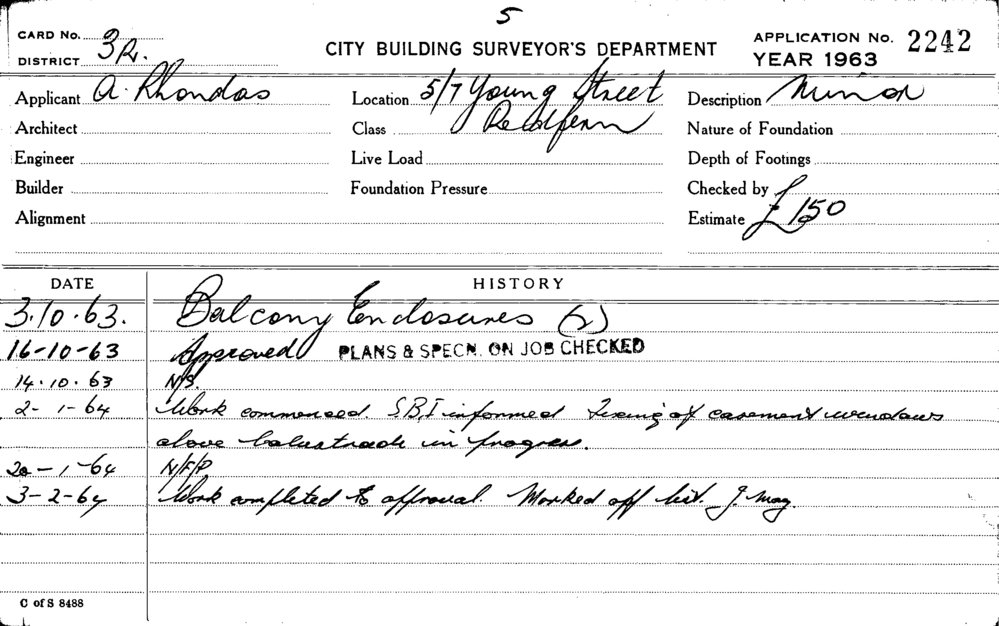 5
CARD No. 3R.
DISTRICT
CITY BUILDING SURVEYOR'S DEPARTMENT
APPLICATION No. 2242
YEAR 1963
Applicant A. Rhondas
Location 5/7 Young Street
Redfern
Description Minor
Architect
Class
Nature of Foundation
Engineer
Live Load
Depth of Footings
Builder
Foundation Pressure
Checked by
Alignment
Estimate £150
DATE HISTORY
3.10.63. Balcony Enclosures (2)
16-10-63 Approved PLANS & SPECN. ON JOB CHECKED
14.10.63 N/S.
2-1-64 Work commenced. S.B.I informed Fixing of casement windows
above balustrade in progress.
20-1-64 N/F/P
3-2-64 Work completed to approval. Marked off list. J. May.
C of S 8488